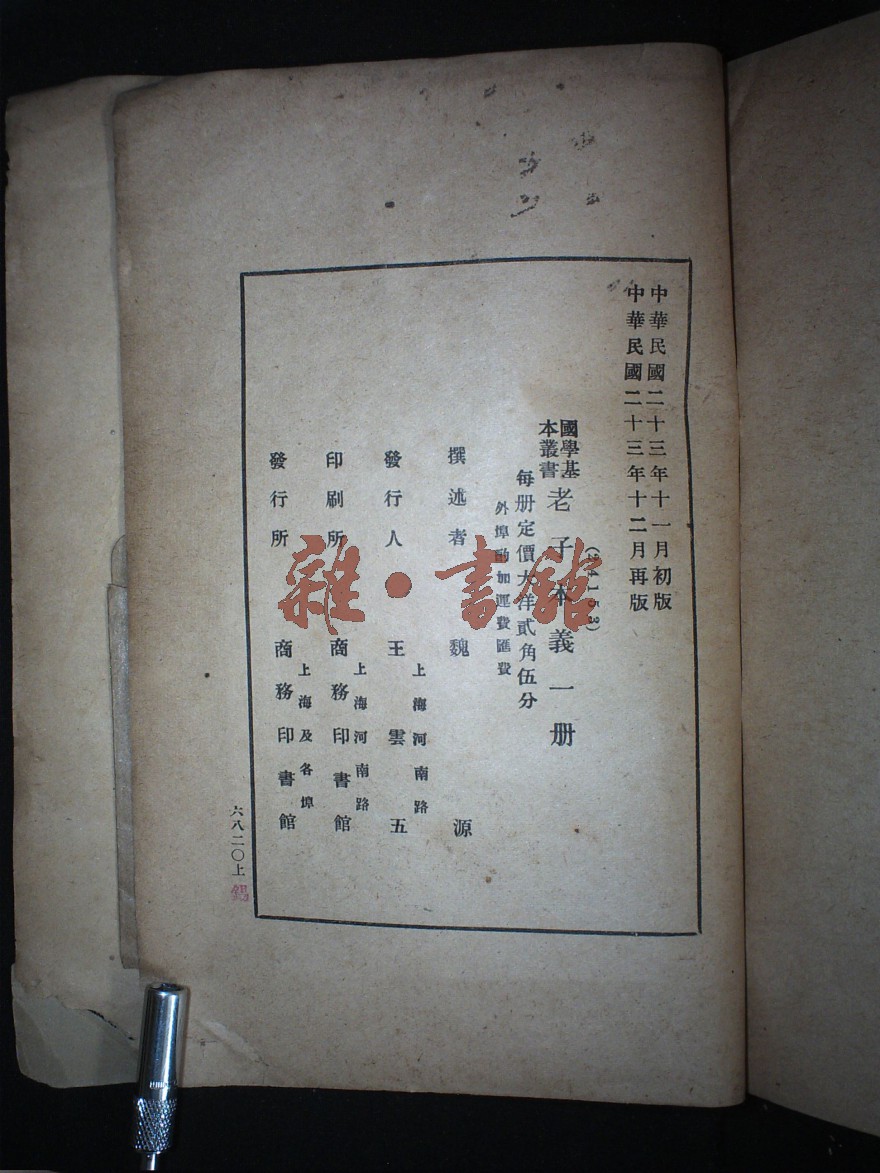 中華民國二十三年十一月初版
中華民國二十三年十二月再版
(24153)
國學基
本叢書
老子本義一册
每册定價大洋貳角伍分
外埠酌加運費匯費
撰述者 魏源
上海河南路
發行人 王雲五
上海河南路
印刷所 商務印書館
上海及各埠
發行所 商務印書館
六八二〇上
雜·書館